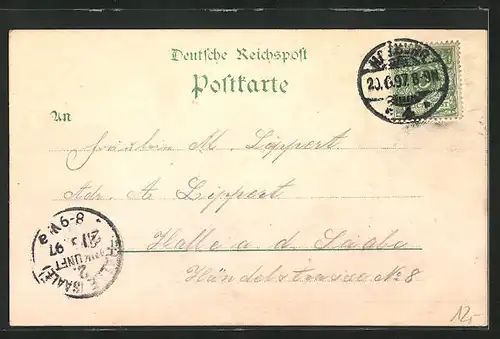 Deutsche Reichspost
Postkarte
An
Fräulein M. Lippert.
Adr. A. Lippert
Halle a. d. Saale
Händelstrasse No 8
20.6.97 8-9N
1
8-9 V a
97
ANKUNFT
2
(SAALE)
12,-